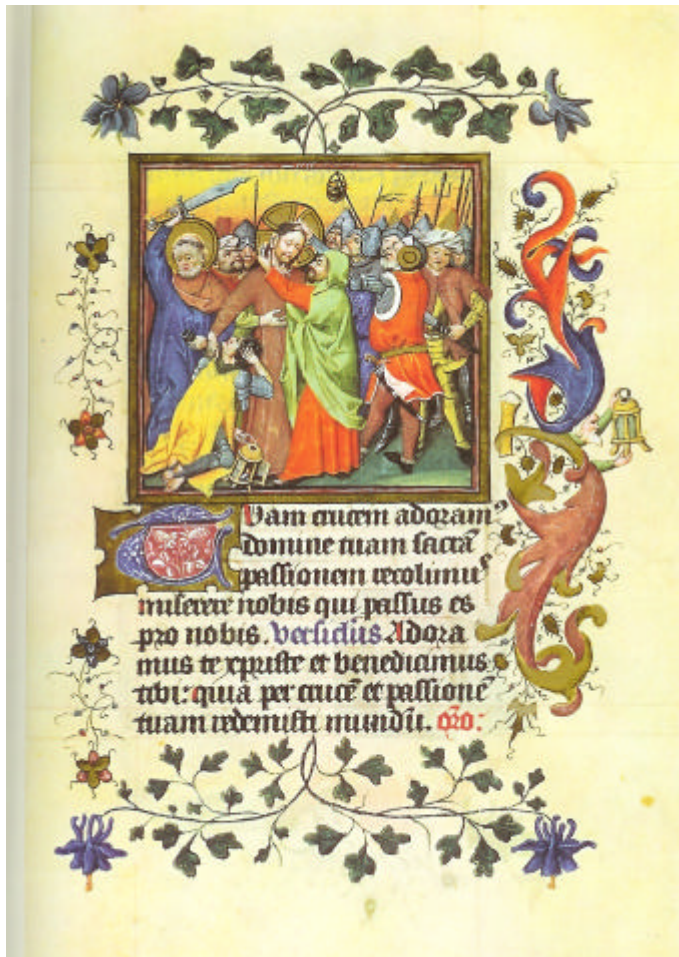 Tuam crucem adoramꝰ
domine tuam sacrā
passionem recolimus
miserere nobis qui passus es
pro nobis. Versiclus Adora
mus te xpriste et benedicimus
tibi: quia per crucē et passionē
tuam redemisti mundū. oro: